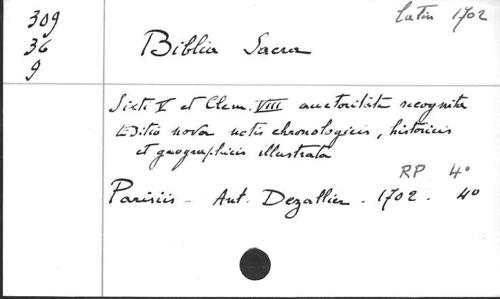 309
36
9
Latin 1702
Biblia Sacra
Sixti V et Clem. VIII auctoritate recognita
Editio nova notis chronologicis, historicis
et geographicis illustrata
RP 4°
Parisiis - Ant. Dezallier. 1702. 4°